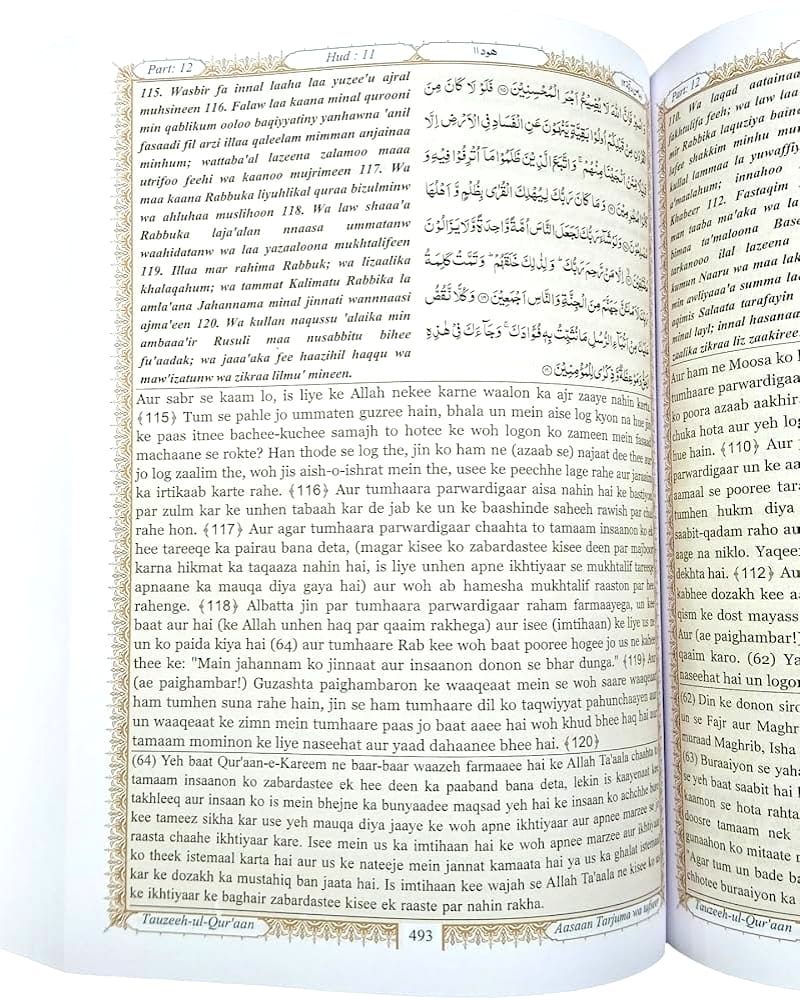 Part: 12
Hud : 11
هود ١١
115. Wasbir fa innal laaha laa yuzee'u ajral
muhsineen 116. Falaw laa kaana minal qurooni
min qablikum ooloo baqiyyatiny yanhawna 'anil
fasaadi fil arzi illaa qaleelam mimman anjainaa
minhum; wattaba'al lazeena zalamoo maaa
utrifoo feehi wa kaanoo mujrimeen 117. Wa
maa kaana Rabbuka liyuhlikal quraa bizulminw
wa ahluhaa muslihoon 118. Wa law shaaa'a
Rabbuka laja'alan nnaasa ummatanw
waahidatanw wa laa yazaaloona mukhtalifeen
119. Illaa mar rahima Rabbuk; wa lizaalika
khalaqahum; wa tammat Kalimatu Rabbika la
amla'ana Jahannama minal jinnati wannnaasi
ajma'een 120. Wa kullan naqussu 'alaika min
ambaaa'ir Rusuli maa nusabbitu bihee
fu'aadak; wa jaaa'aka fee haazihil haqqu wa
maw'izatunw wa zikraa lilmu' mineen.
فَاِنَّ اللّٰهَ لَا يُضِيْعُ اَجْرَ الْمُحْسِنِيْنَ ۝ فَلَوْ لَا كَانَ مِنَ
مِنْ قَبْلِكُمْ اُولُوْا بَقِيَّةٍ يَّنْهَوْنَ عَنِ الْفَسَادِ فِى الْاَرْضِ اِلَّا
مِّمَّنْ اَنْجَيْنَا مِنْهُمْ ۚ وَاتَّبَعَ الَّذِيْنَ ظَلَمُوْا مَآ اُتْرِفُوْا فِيْهِ وَ
كَانُوْا مُجْرِمِيْنَ ۝ وَمَا كَانَ رَبُّكَ لِيُهْلِكَ الْقُرٰى بِظُلْمٍ وَّ اَهْلُهَا
وَلَوْ شَآءَ رَبُّكَ لَجَعَلَ النَّاسَ اُمَّةً وَّاحِدَةً وَّلَا يَزَالُوْنَ
اِلَّا مَنْ رَّحِمَ رَبُّكَ ۭ وَلِذٰلِكَ خَلَقَهُمْ ۭ وَتَمَّتْ كَلِمَةُ
جَهَنَّمَ مِنَ الْجِنَّةِ وَالنَّاسِ اَجْمَعِيْنَ ۝ وَكُلًّا نَّقُصُّ
عَلَيْكَ مِنْ اَنْۢبَآءِ الرُّسُلِ مَا نُثَبِّتُ بِهٖ فُؤَادَكَ ۚ وَجَآءَكَ فِيْ هٰذِهِ
وَمَوْعِظَةٌ وَّذِكْرٰى لِلْمُؤْمِنِيْنَ ۝
Aur sabr se kaam lo, is liye ke Allah nekee karne waalon ka ajr zaaye nahin karta.
﴾115﴿ Tum se pahle jo ummaten guzree hain, bhala un mein aise log kyon na hue jin
ke paas itnee bachee-kuchee samajh to hotee ke woh logon ko zameen mein fasaad
machaane se rokte? Han thode se log the, jin ko ham ne (azaab se) najaat dee thee aur
jo log zaalim the, woh jis aish-o-ishrat mein the, usee ke peechhe lage rahe aur jaraaim
ka irtikaab karte rahe. ﴾116﴿ Aur tumhaara parwardigaar aisa nahin hai ke bastiyon
par zulm kar ke unhen tabaah kar de jab ke un ke baashinde saheeh rawish par chal
rahe hon. ﴾117﴿ Aur agar tumhaara parwardigaar chaahta to tamaam insaanon ko ek
hee tareeqe ka pairau bana deta, (magar kisee ko zabardastee kisee deen par majboor
karna hikmat ka taqaaza nahin hai, is liye unhen apne ikhtiyaar se mukhtalif tareeqe
apnaane ka mauqa diya gaya hai) aur woh ab hamesha mukhtalif raaston par hee
rahenge. ﴾118﴿ Albatta jin par tumhaara parwardigaar raham farmaayega, un kee
baat aur hai (ke Allah unhen haq par qaaim rakhega) aur isee (imtihaan) ke liye us ne
un ko paida kiya hai (64) aur tumhaare Rab kee woh baat pooree hogee jo us ne kahee
thee ke: "Main jahannam ko jinnaat aur insaanon donon se bhar dunga." ﴾119﴿ Aur
(ae paighambar!) Guzashta paighambaron ke waaqeaat mein se woh saare waaqeaat
ham tumhen suna rahe hain, jin se ham tumhaare dil ko taqwiyyat pahunchaayen aur
un waaqeaat ke zimn mein tumhaare paas jo baat aaee hai woh khud bhee haq hai aur
tamaam mominon ke liye naseehat aur yaad dahaanee bhee hai. ﴾120﴿
(64) Yeh baat Qur'aan-e-Kareem ne baar-baar waazeh farmaaee hai ke Allah Ta'aala chaahta to
tamaam insaanon ko zabardastee ek hee deen ka paaband bana deta, lekin is kaayenaat kee
takhleeq aur insaan ko is mein bhejne ka bunyaadee maqsad yeh hai ke insaan ko achchhe buree
kee tameez sikha kar use yeh mauqa diya jaaye ke woh apne ikhtiyaar aur apnee marzee se jo
raasta chaahe ikhtiyaar kare. Isee mein us ka imtihaan hai ke woh apnee marzee aur ikhtiyaar
ko theek istemaal karta hai aur us ke nateeje mein jannat kamaata hai ya us ka ghalat istemaal
kar ke dozakh ka mustahiq ban jaata hai. Is imtihaan kee wajah se Allah Ta'aala ne kisee ko us
ke ikhtiyaar ke baghair zabardastee kisee ek raaste par nahin rakha.
Tauzeeh-ul-Qur'aan
493
Aasaan Tarjuma wa tafseer
Part: 12
110. Wa laqad aatainaa
fakhtulifa feeh; wa law laa
mir Rabbika laquziya baina
lafee shakkim minhu mu
kullal lammaa la yuwaffiy
a'maalahum; innahoo
Khabeer 112. Fastaqim
man taaba ma'aka wa la
bimaa ta'maloona Base
tarkanooo ilal lazeena
kumun Naaru wa maa lak
min awliyaaa'a summa laa
aqimis Salaata tarafayin
minal layl; innal hasanaa
zaalika zikraa liz zaakiree
Aur ham ne Moosa ko l
tumhaare parwardigaa
ko poora azaab aakhir
chuka hota aur yeh log
hue hain. ﴾110﴿ Aur
parwardigaar un ke aa
aamaal se pooree tara
tumhen hukm diya
saabit-qadam raho au
aage na niklo. Yaqee
dekhta hai. ﴾112﴿ Au
kabhee dozakh kee aa
qism ke dost mayass
Aur (ae paighambar!)
qaaim karo. (62) Ya
naseehat hai un logon
(62) Din ke donon siro
un se Fajr aur Maghr
muraad Maghrib, Isha
(63) Buraaiyon se yah
se yeh baat saabit hai
kaamon se hota rahta
doosre tamaam nek
gunaahon ko mitaate r
"Agar tum un bade ba
chhotee buraaiyon ka
Tauzeeh-ul-Qur'aan